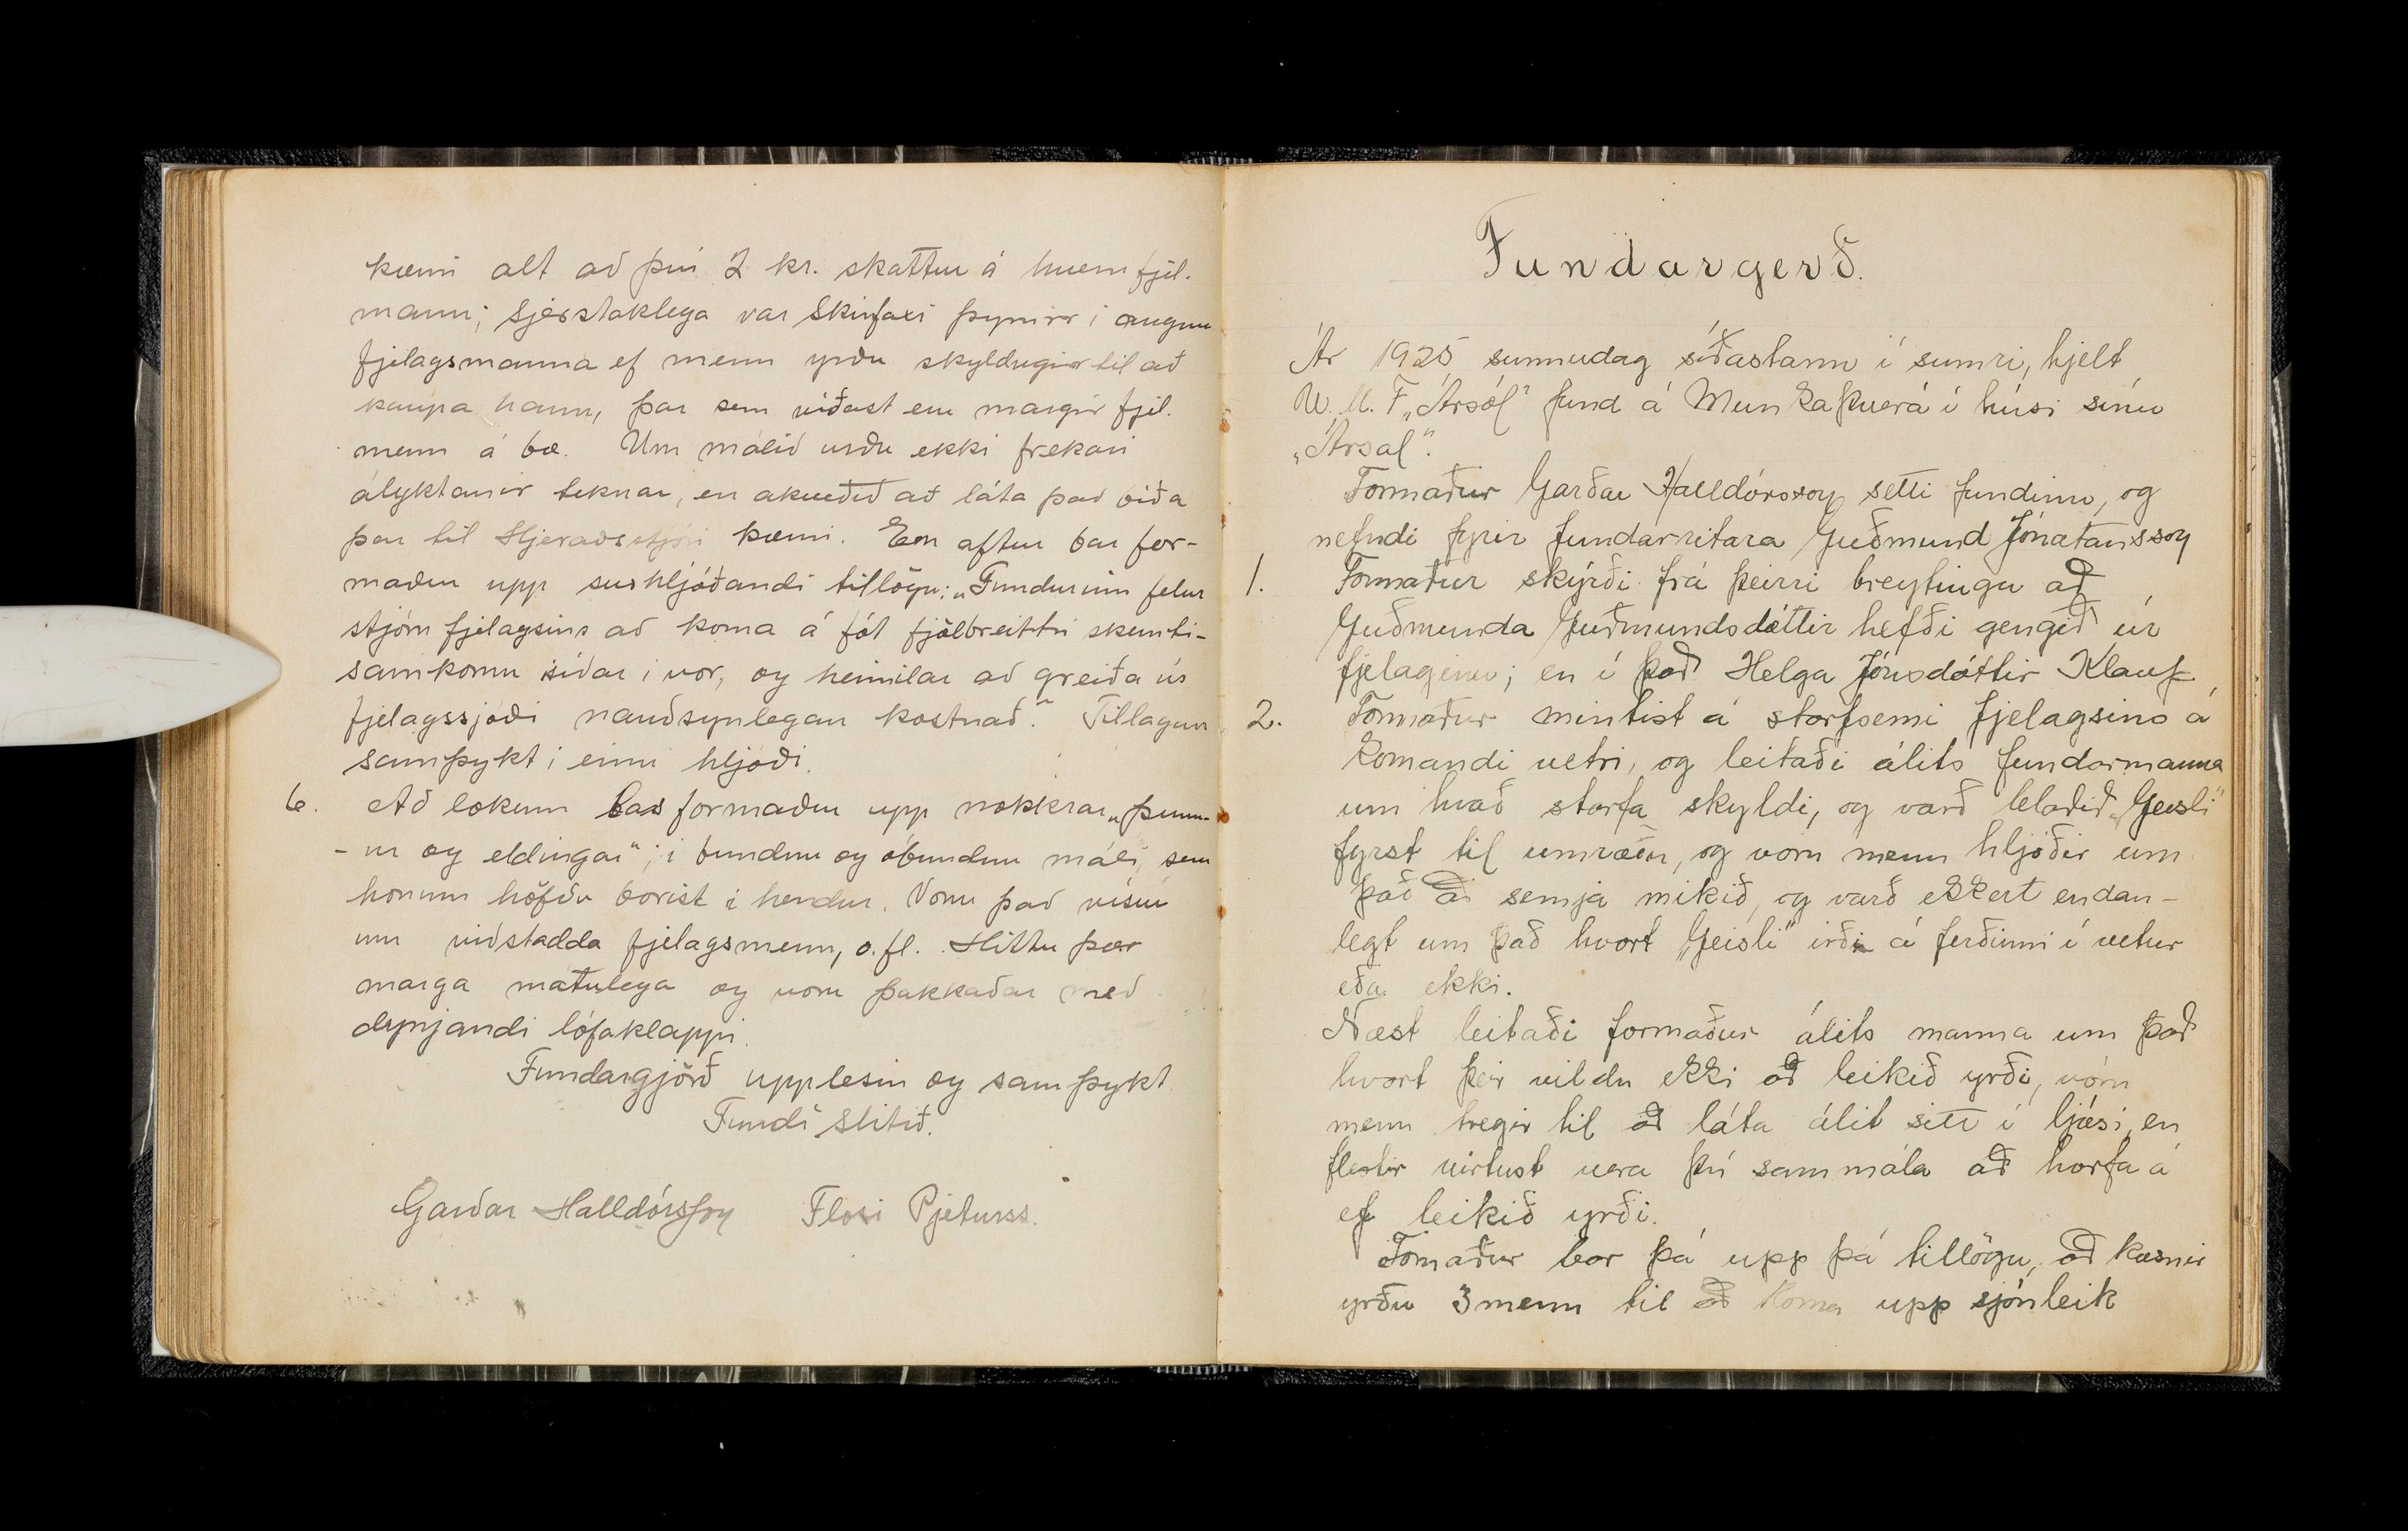 kæmi alt að því 2 kr. skattur á hvern fjel.
mann; sjerstaklega var Skinfaxi þyrnir i augum
fjelagsmanna ef menn yrðu skyldugir til að
kaupa hann, þar sem viðast eru margir fjel.
menn á bæ. Um málið urðu ekki frekari
ályktanir teknar, en akveðið að láta það biða
þar til Hjeraðsstjóri kæmi. Enn aftur bar for-
maður upp svohljóðandi tillögu: „Fundurinn felur
stjórn fjelagsins að koma á fót fjölbreittri skemti-
samkomu siðar i vor, og heimilar að greiða úr
fjelagssjóði nauðsynlegan kostnað." Tillagan
samþykt i einu hljóði.
6. Að lokum las formaður upp nokkrar „þrum-
-ur og eldingar"; i bundnu og óbundnu máli, sem
honum höfðu borist i hendur. Voru það visur
um viðstadda fjelagsmenn, o.fl. Hittu þær
marga matulega og voru þakkaðar með
dynjandi lófaklappi.
Fundargjörð upplesin og samþykt
Fundi slitið.
Garðar Halldórsson Flosi Pjeturss.
Fundargerð.
Ár 1925 sunnudag síðastann í sumri, hjelt
U. M. F. „Ársól" fund á Munkaþverá í húsi sínu
„Ársal".
Formaður Garðar Halldórsson setti fundinn, og
nefndi fyrir fundarritara Guðmund Jónatansson
1. Formaður skýrði frá þeirri breytingu að
Guðmunda Guðmundsdóttir hefði gengið úr
fjelaginu; en í það Helga Jónsdóttir Klauf
2. Formaður mintist á starfsemi fjelagsins á
komandi vetri, og leitaði álits fundarmanna
um hvað starfa skyldi, og varð blaðið „Geisli"
fyrst til umræðu, og voru menn hljóðir um
það að semja mikið, og varð ekkert endan-
legt um það hvort „Geisli" irði á ferðinni í vetur
eða ekki.
Næst leitaði formaður álits manna um það
hvort þeir vildu ekki að leikið yrði, vóru
menn tregir til að láta álit sitt í ljósi, en
flestir virtust vera því sammála að horfa á
ef leikið yrði.
Formaður bar þá upp þá tillögu, að kosnir
yrðu 3 menn til að koma upp sjónleik